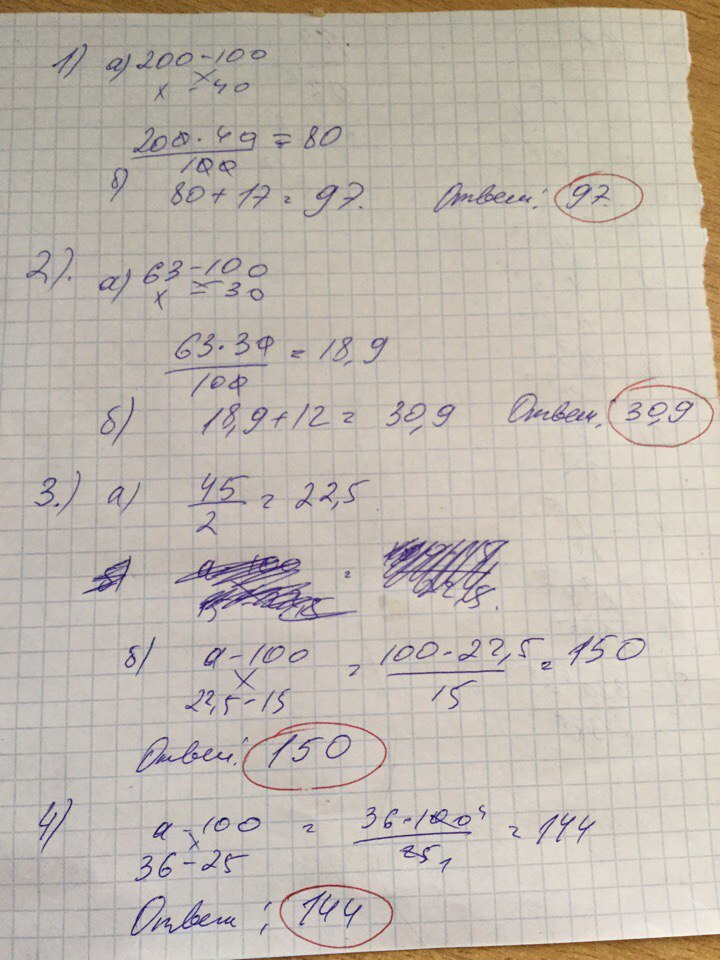 1) а) 200 – 100
х – 40
200 · 40 / 100 = 80
б) 80 + 17 = 97. Ответ: 97.
2). а) 63 – 100
х – 30
63 · 30 / 100 = 18,9
б) 18,9 + 12 = 30,9 Ответ: 30,9
3.) а) 45 / 2 = 22,5
б) а – 100 = 100 · 22,5 / 15 = 150
22,5 – 15
Ответ: 150
4) а – 100 = 36 · 100 4 / 25 1 = 144
36 – 25
Ответ: 144